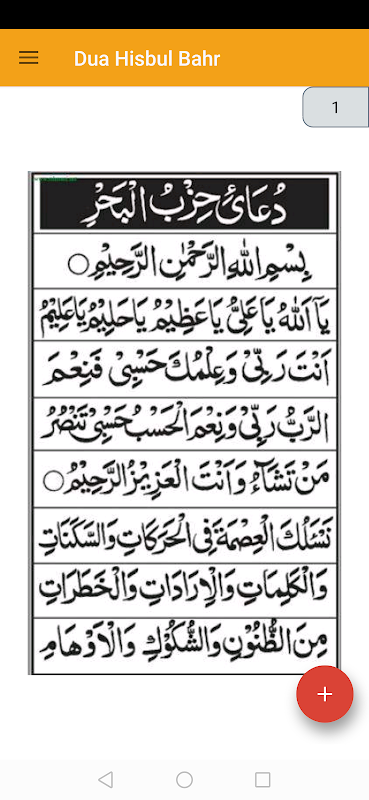 Dua Hisbul Bahr
1
دُعَائِ حِزْبُ الْبَحْرِ
بِسْمِ اللهِ الرَّحْمٰنِ الرَّحِيْمِ ○
يَآ اَللهُ يَا عَلِيُّ يَا عَظِيْمُ يَا حَلِيْمُ يَا عَلِيْمُ
اَنْتَ رَبِّىْ وَعِلْمُكَ حَسْبِىْ فَنِعْمَ
الرَّبُّ رَبِّىْ وَنِعْمَ الْحَسْبُ حَسْبِىْ تَنْصُرُ
مَنْ تَشَآءُ وَاَنْتَ الْعَزِيْزُ الرَّحِيْمُ ○
نَسْئَلُكَ الْعِصْمَةَ فِى الْحَرَكَاتِ وَالسَّكَنَاتِ
وَالْكَلِمَاتِ وَالْاِرَادَاتِ وَالْخَطَرَاتِ
مِنَ الظُّنُوْنِ وَالشُّكُوْكِ وَالْاَوْهَامِ